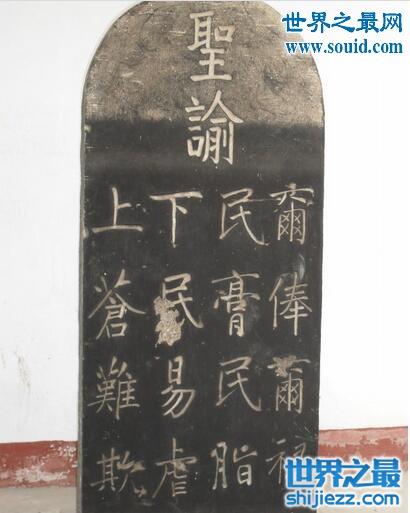 世界之最网
www.souid.com
聖諭
爾俸爾祿
民膏民脂
下民易虐
上蒼難欺
世界之最
shijiezz.com